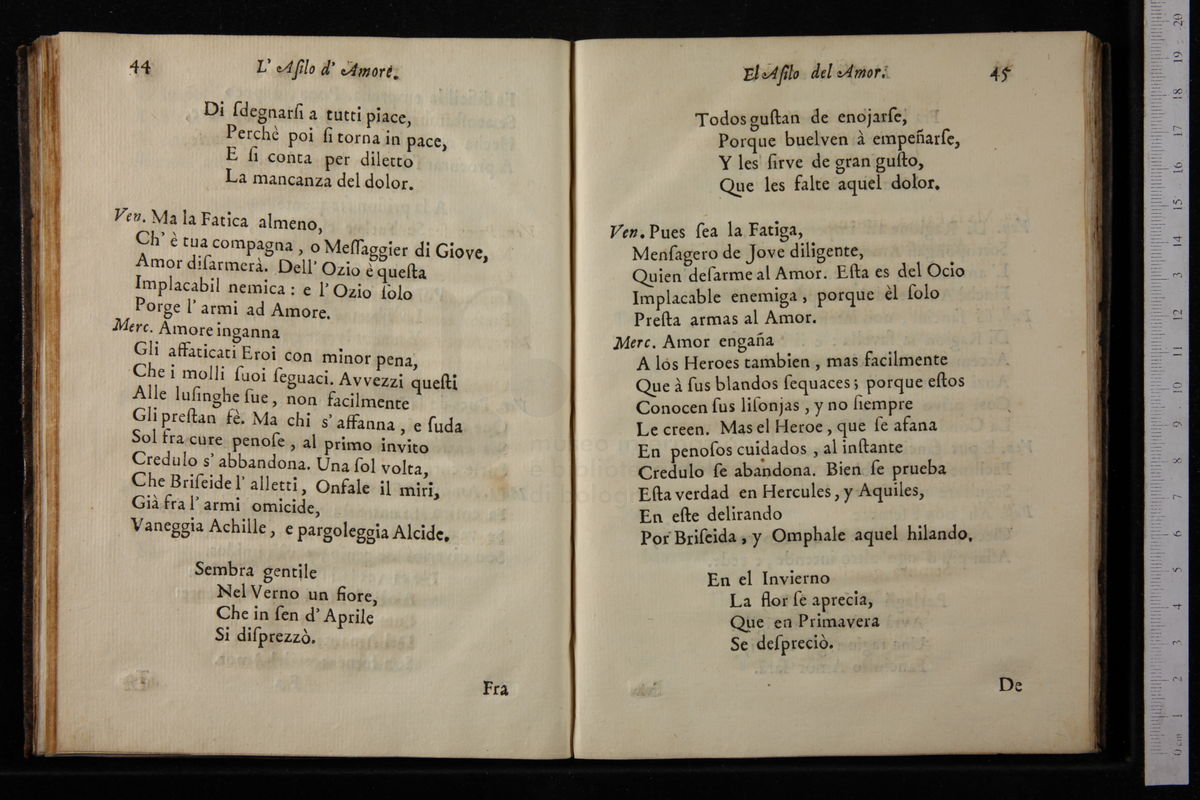 44
L' Aſilo d' Amore.
Di ſdegnarſi a tutti piace,
Perchè poi ſi torna in pace,
E ſi conta per diletto
La mancanza del dolor.
Ven. Ma la Fatica almeno,
Ch' è tua compagna , o Meſſaggier di Giove,
Amor diſarmerà. Dell' Ozio è queſta
Implacabil nemica : e l' Ozio ſolo
Porge l' armi ad Amore.
Merc. Amore inganna
Gli affaticati Eroi con minor pena,
Che i molli ſuoi ſeguaci. Avvezzi queſti
Alle luſinghe ſue , non facilmente
Gli preſtan fè. Ma chi s' affanna , e ſuda
Sol fra cure penoſe , al primo invito
Credulo s' abbandona. Una ſol volta,
Che Briſeide l' alletti , Onfale il miri,
Già fra l' armi omicide,
Vaneggia Achille , e pargoleggia Alcide.
Sembra gentile
Nel Verno un fiore,
Che in ſen d' Aprile
Si diſprezzò.
Fra
El Aſilo del Amor.
45
Todos guſtan de enojarſe,
Porque buelven à empeñarſe,
Y les ſirve de gran guſto,
Que les falte aquel dolor.
Ven. Pues ſea la Fatiga,
Menſagero de Jove diligente,
Quien deſarme al Amor. Eſta es del Ocio
Implacable enemiga , porque èl ſolo
Preſta armas al Amor.
Merc. Amor engaña
A los Heroes tambien , mas facilmente
Que à ſus blandos ſequaces ; porque eſtos
Conocen ſus liſonjas , y no ſiempre
Le creen. Mas el Heroe , que ſe afana
En penoſos cuidados , al inſtante
Credulo ſe abandona. Bien ſe prueba
Eſta verdad en Hercules , y Aquiles,
En eſte delirando
Por Briſeida , y Omphale aquel hilando.
En el Invierno
La flor ſe aprecia,
Que en Primavera
Se deſpreciò.
De